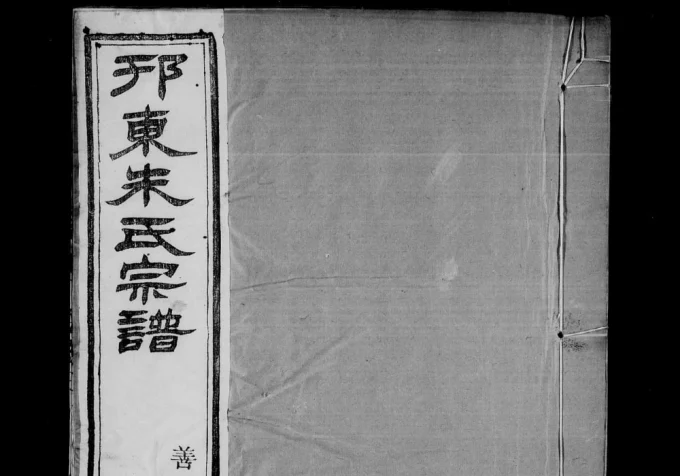 邗東朱氏宗譜
善